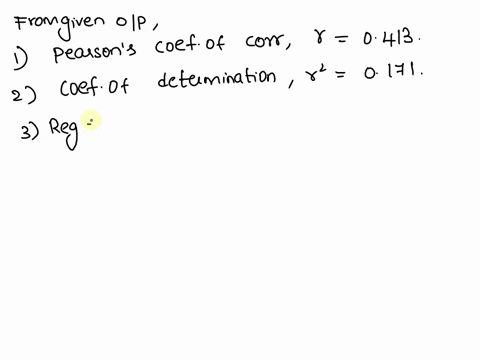 From given O/P,
1) Pearson's coef. of corr, r = 0.413.
2) Coef. of determination, r² = 0.171.
3) Reg